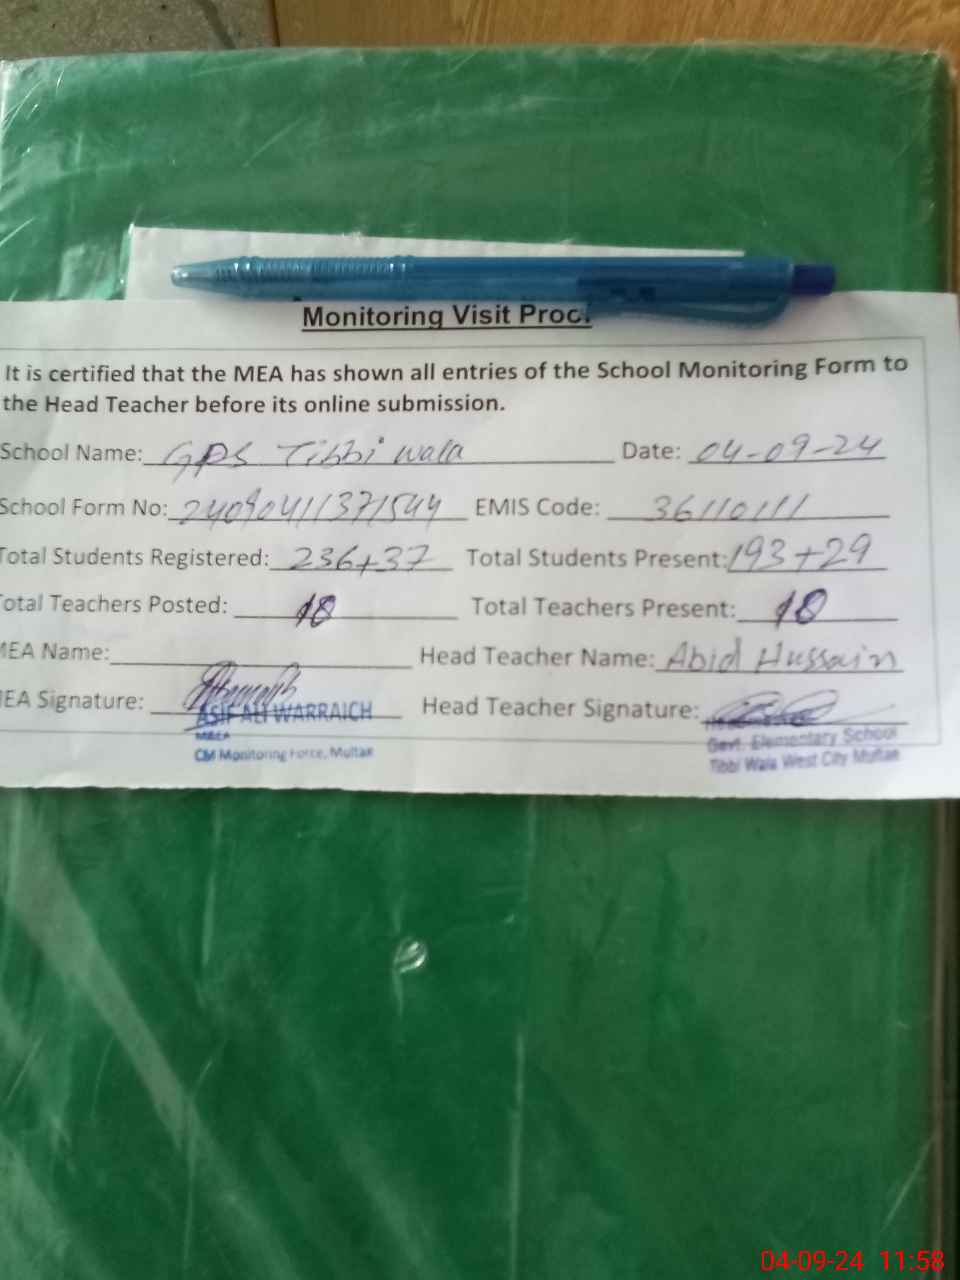 Monitoring Visit Proof
It is certified that the MEA has shown all entries of the School Monitoring Form to
the Head Teacher before its online submission.
School Name: GPS Tibbi wala Date: 04-09-24
School Form No: 24090411371544 EMIS Code: 36110111
Total Students Registered: 236+37 Total Students Present: 193+29
Total Teachers Posted: 18 Total Teachers Present: 18
MEA Name: Head Teacher Name: Abid Hussain
MEA Signature: Head Teacher Signature:
ASIF ALI WARRAICH
MEA
CM Monitoring Force, Multan
Govt. Elementary School
Tibbi Wala West City Multan
04-09-24 11:58